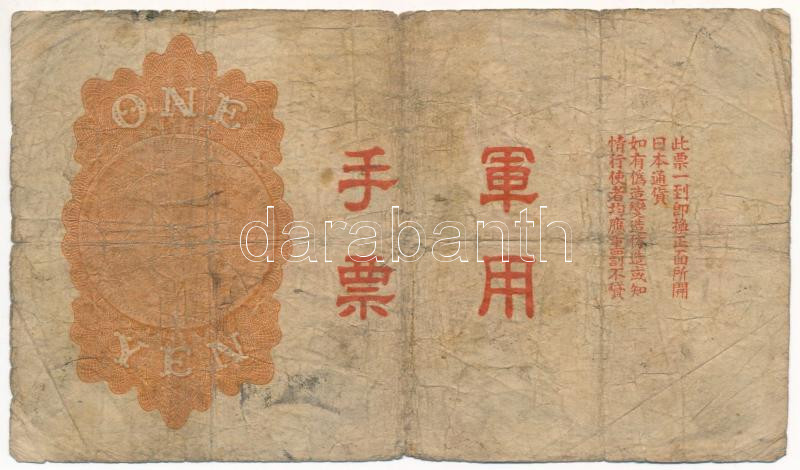 ONE
YEN
軍用
手票
此票一到即換正面所開
日本通貨
如有偽造變造倣造或知
情行使者均應重罰不貸
darabanth